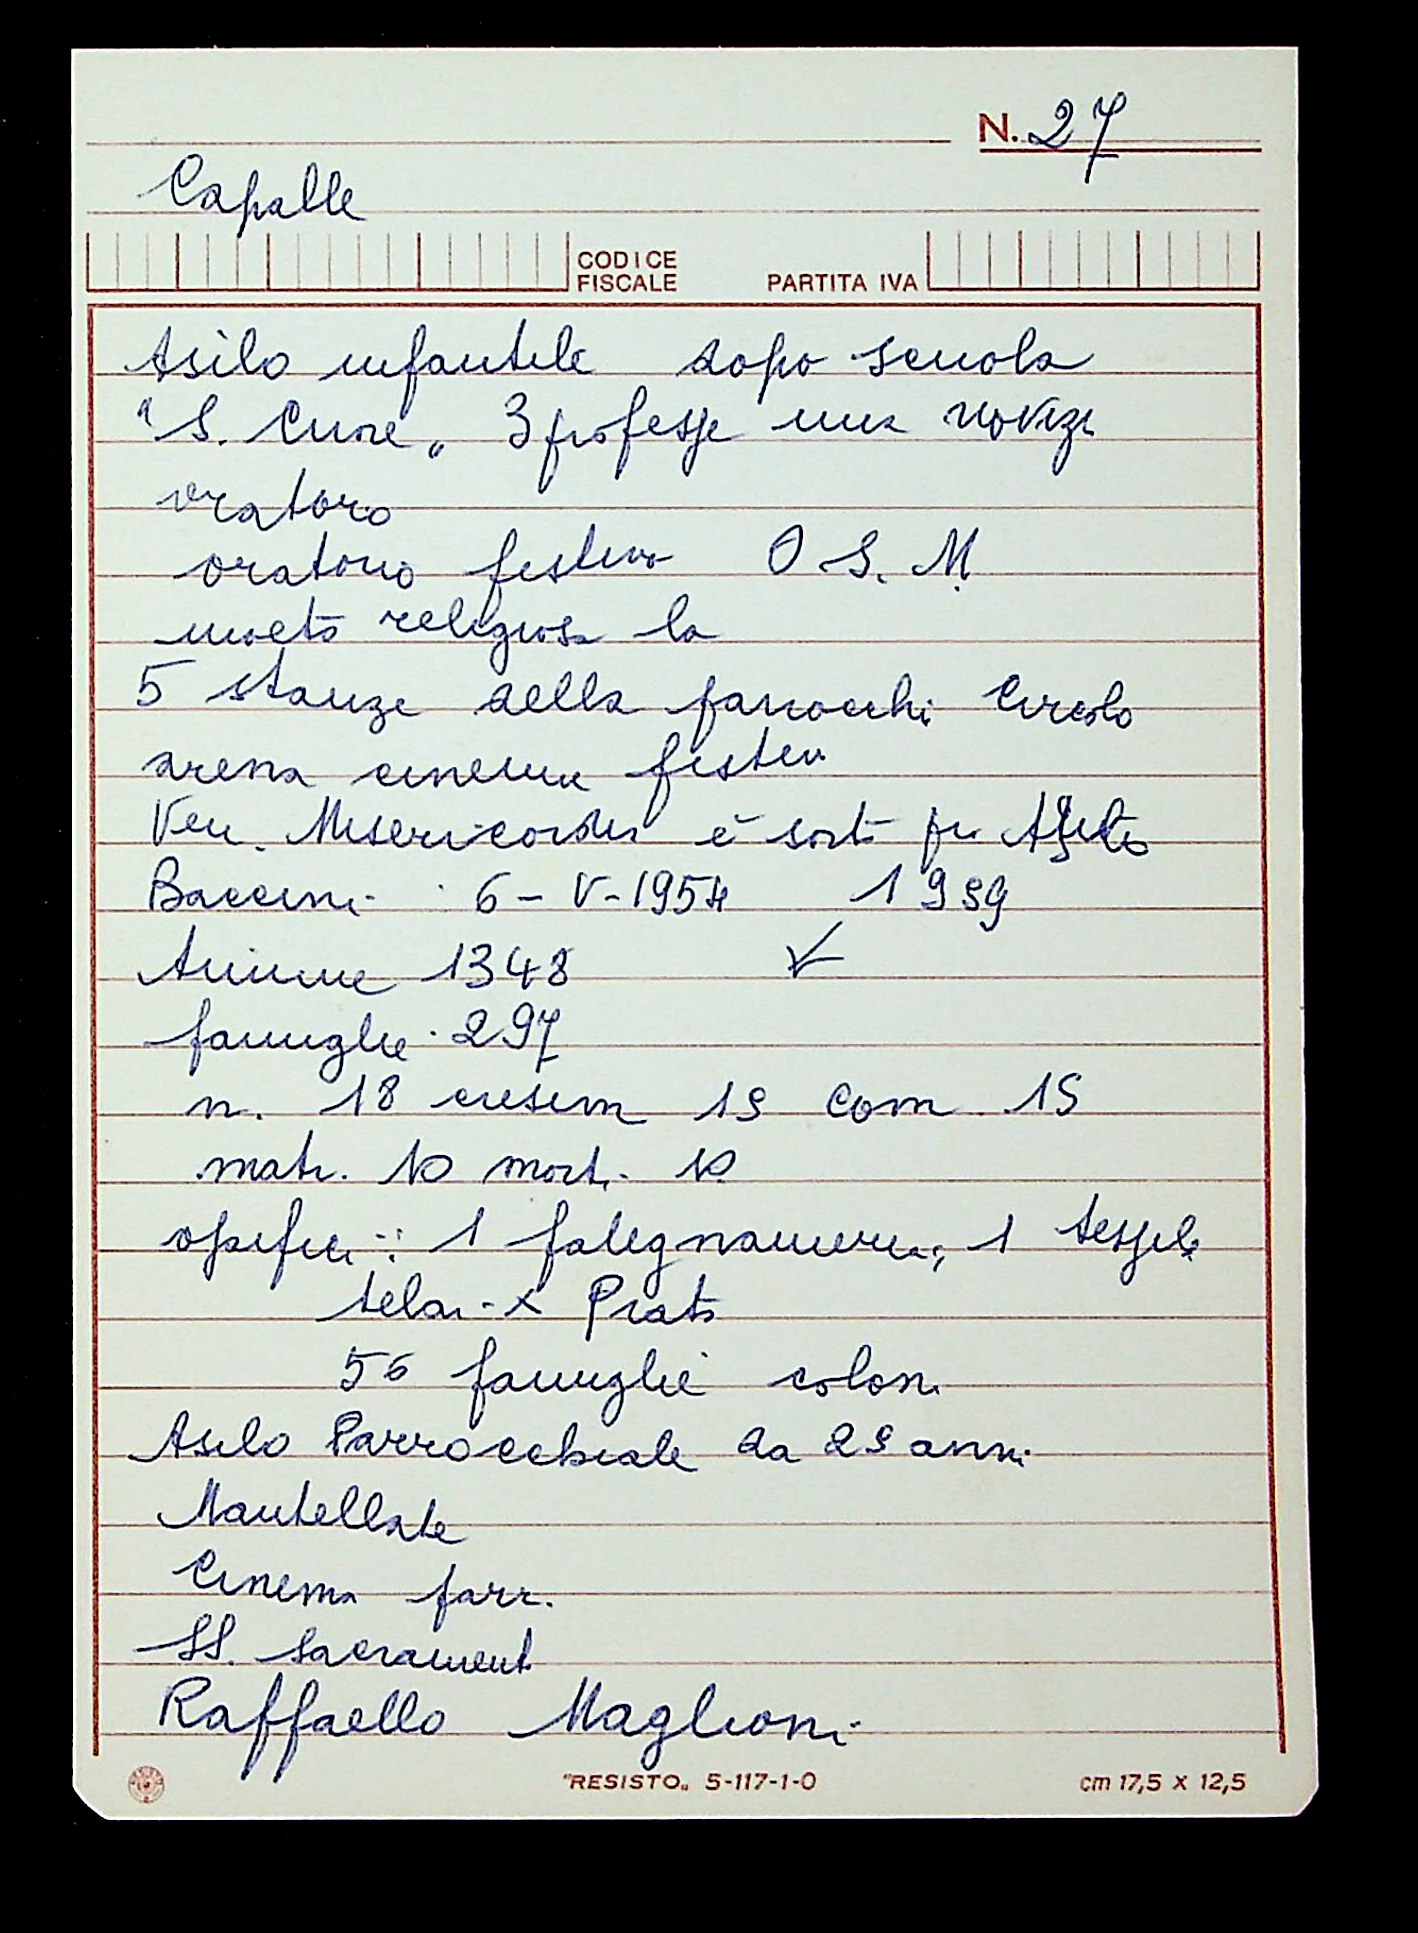 N. 27
Capalle
CODICE
FISCALE
PARTITA IVA
Asilo infantile dopo scuola
"S. Cuore„ 3 professe una noviz
oratoro
oratorio festivo O S. M.
religiosa la
5 stanze della parrocchi Circolo
arena cinema festiv
Ven. Misericordia è sort per
Baccini 6 - V - 1954 1959
Anime 1348 ✓
famiglie 297
n. 18 cresim 15 com. 15
matr. 10 mort. 10
opifici : 1 falegnameria; 1
telai x Prato
56 famiglie coloni
Asilo Parrocchiale da 25 anni
Mantellate
Cinema parr.
SS. Sacrament
Raffaello Maglioni
"RESISTO„ 5-117-1-0
cm 17,5 x 12,5